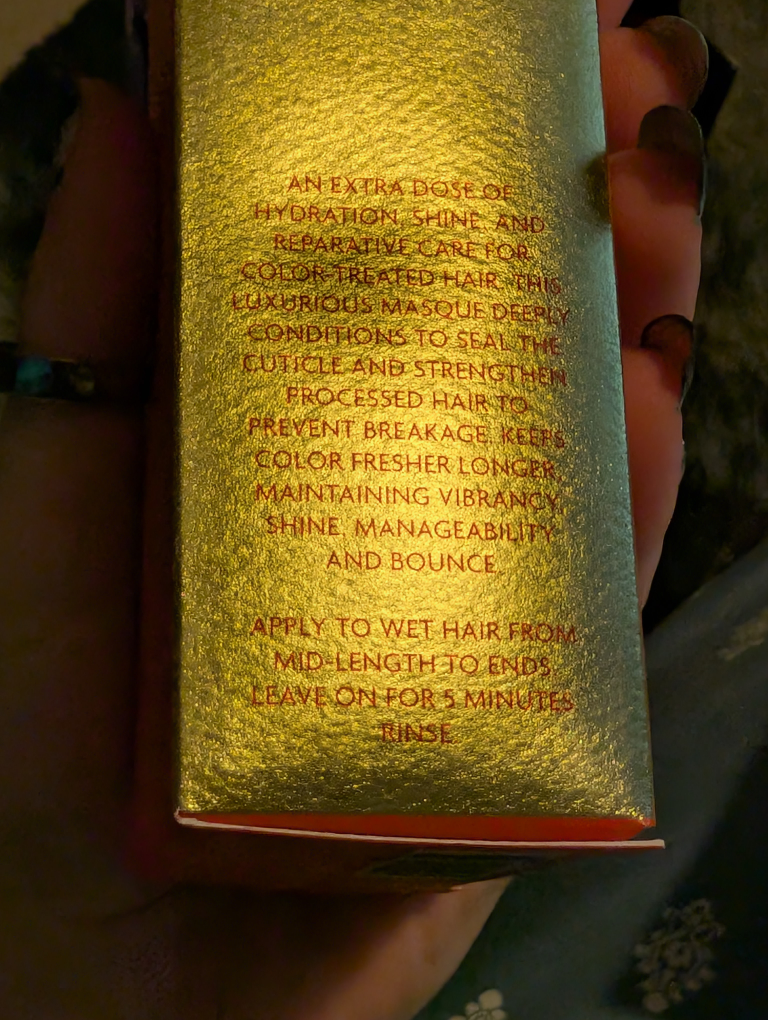 AN EXTRA DOSE OF
HYDRATION, SHINE, AND
REPARATIVE CARE FOR
COLOR-TREATED HAIR. THIS
LUXURIOUS MASQUE DEEPLY
CONDITIONS TO SEAL THE
CUTICLE AND STRENGTHEN
PROCESSED HAIR TO
PREVENT BREAKAGE. KEEPS
COLOR FRESHER LONGER,
MAINTAINING VIBRANCY,
SHINE, MANAGEABILITY
AND BOUNCE.
APPLY TO WET HAIR FROM
MID-LENGTH TO ENDS.
LEAVE ON FOR 5 MINUTES.
RINSE.